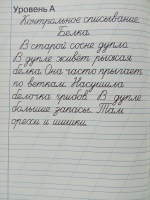 Уровень А
Контрольное списывание.
Белка.
В старой сосне дупло.
В дупле живёт рыжая
белка. Она часто прыгает
по веткам. Насушила
белочка грибов. В дупле
большие запасы. Там
орехи и шишки.